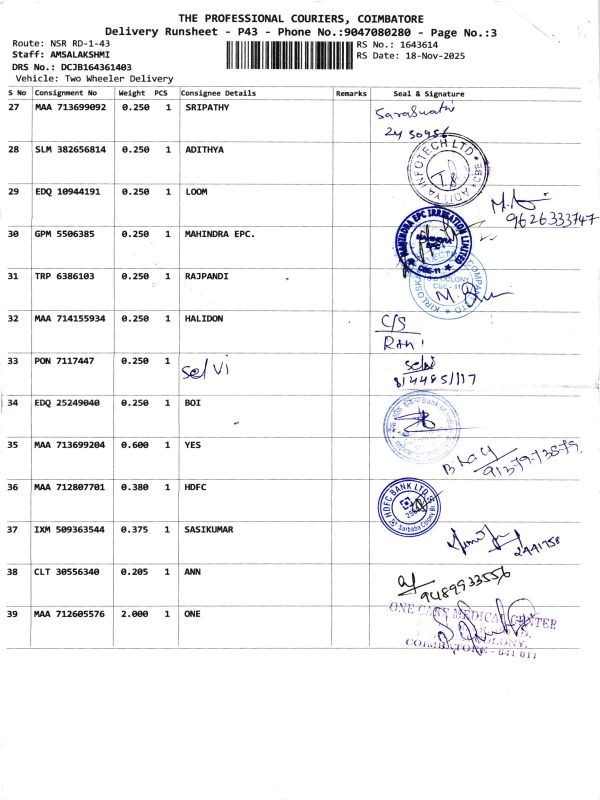 THE PROFESSIONAL COURIERS, COIMBATORE
Delivery Runsheet - P43 - Phone No.:9047080280 - Page No.:3
Route: NSR RD-1-43
RS No.: 1643614
Staff: AMSALAKSHMI
RS Date: 18-Nov-2025
DRS No.: DCJB164361403
Vehicle: Two Wheeler Delivery
S No Consignment No Weight PCS Consignee Details Remarks Seal & Signature
27 MAA 713699092 0.250 1 SRIPATHY Saraswathi
28 SLM 382656814 0.250 1 ADITHYA
ADITYA INFOTECH LTD * CBE *
29 EDQ 10944191 0.250 1 LOOM
9626333747
30 GPM 5506385 0.250 1 MAHINDRA EPC.
MAHINDRA EPC IRRIGATION LIMITED
* CBE-11 *
31 TRP 6386103 0.250 1 RAJPANDI
32 MAA 714155934 0.250 1 HALIDON C/S
Rani
33 PON 7117447 0.250 1 Selvi Selvi
8124485117
34 EDQ 25249040 0.250 1 BOI
Bank of India
35 MAA 713699204 0.600 1 YES
913-79-738-79
36 MAA 712807701 0.380 1 HDFC
HDFC BANK LTD.
Saibaba Colony Br.
37 IXM 509363544 0.375 1 SASIKUMAR
2441758
38 CLT 30556340 0.205 1 ANN
9489933556
39 MAA 712605576 2.000 1 ONE
ONE CARE MEDICAL CENTER
COLONY,
COIMBATORE - 641 011